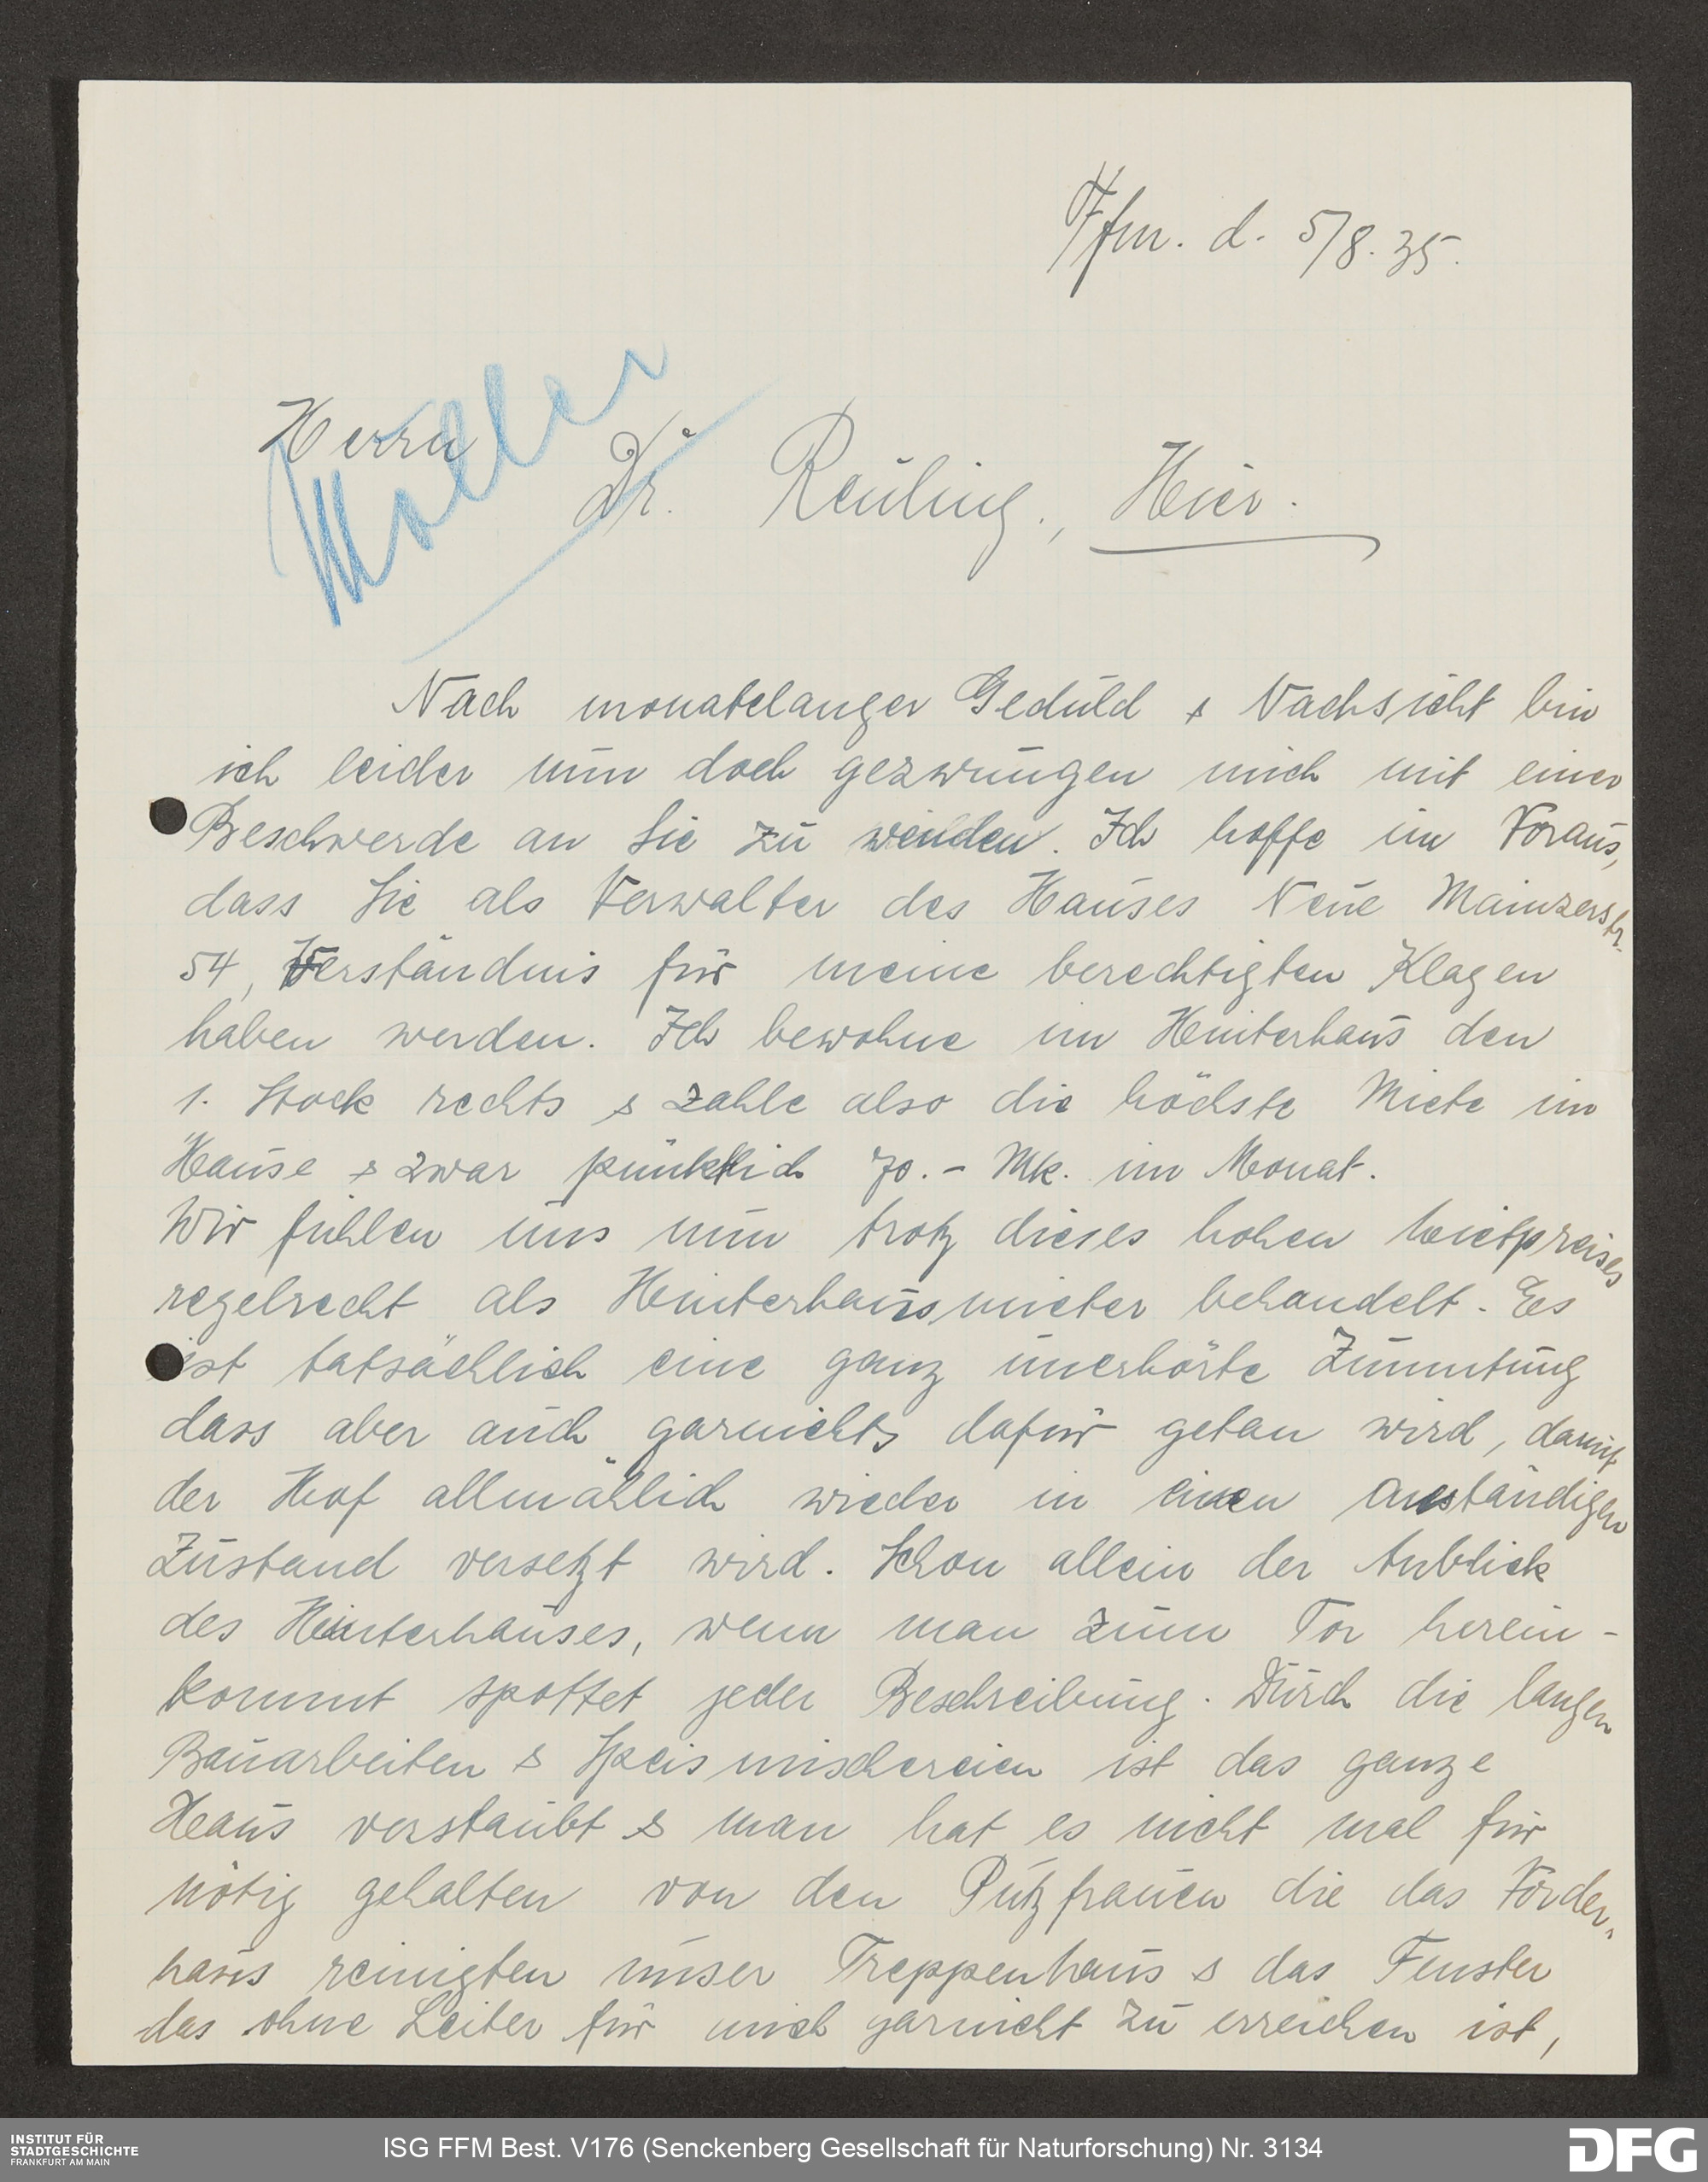 Ffm. d. 5/8.35.
Herrn
Moller
Dr. Reuling., Hier.
Nach monatelanger Geduld & Nachsicht bin
ich leider nun doch gezwungen mich mit einer
Beschwerde an Sie zu wenden. Ich hoffe im Voraus,
dass Sie als Verwalter des Hauses Neue Mainzerstr.
54, Verständnis für meine berechtigten Klagen
haben werden. Ich bewohne im Hinterhaus den
1. Stock rechts & zahle also die höchste Miete im
Hause & zwar pünktlich 70.- Mk. im Monat.
Wir fühlen uns nun trotz dieses hohen Mietpreises
regelrecht als Hinterhausmieter behandelt. Es
ist tatsächlich eine ganz unerhörte Zumutung
dass aber auch garnichts dafür getan wird, damit
der Hof allmählich wieder in einen anständigen
Zustand versetzt wird. Schon allein der Anblick
des Hinterhauses, wenn man zum Tor herein-
kommt spottet jeder Beschreibung. Durch die langen
Bauarbeiten & Speismischereien ist das ganze
Haus verstaubt & man hat es nicht mal für
nötig gehalten von den Putzfrauen die das Vorder-
haus reinigten unser Treppenhaus & das Fenster
das ohne Leiter für mich garnicht zu erreichen ist,
INSTITUT FÜR
STADTGESCHICHTE
FRANKFURT AM MAIN
ISG FFM Best. V176 (Senckenberg Gesellschaft für Naturforschung) Nr. 3134
DFG